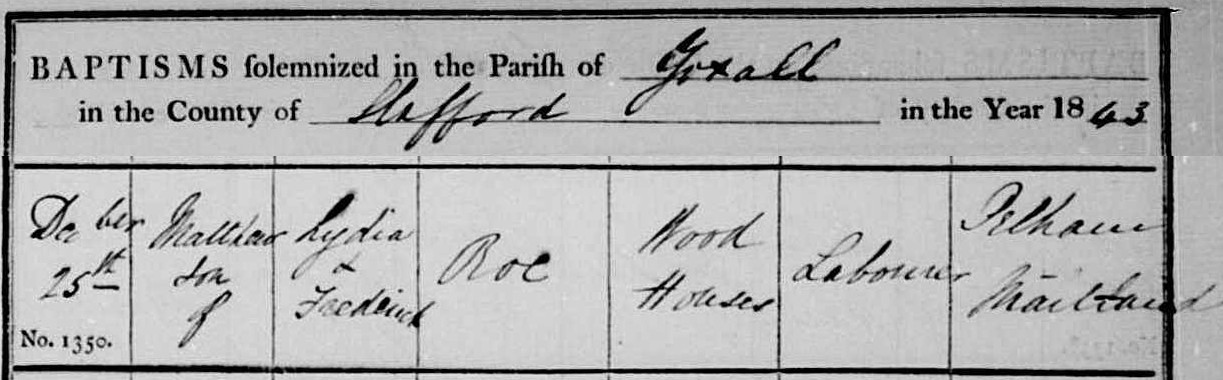 BAPTISMS solemnized in the Parish of Yoxall
in the County of Stafford in the Year 1843
Decber 25th No. 1350.
Matthew son of
Lydia & Frederick
Roe
Wood Houses
Labourer
Pelham Maitland